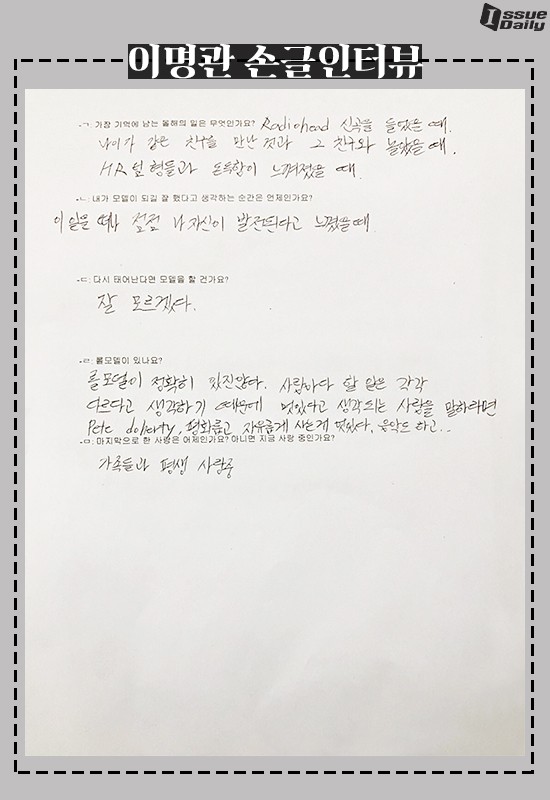 Issue
Daily
이명관 손글인터뷰
-ㄱ: 가장 기억에 남는 올해의 일은 무엇인가요? Radiohead 신곡을 들었을 때.
나이가 같은 친구를 만난 것과 그 친구와 놀았을 때.
HR팀 형들과 돈독함이 느껴졌을 때.
-ㄴ: 내가 모델이 되길 잘 했다고 생각하는 순간은 언제인가요?
이 일을 때나 점점 나 자신이 발전된다고 느꼈을때.
-ㄷ: 다시 태어난다면 모델을 할 건가요?
잘 모르겠다.
-ㄹ: 롤모델이 있나요?
롤모델이 정확히 있진않다. 사람마다 할 일은 각각
다르다고 생각하기 때문에 멋있다고 생각드는 사람을 말하라면
Pete doherty, 평화롭고 자유롭게 사는게 멋있다, 음악도 하고..
-ㅁ: 마지막으로 한 사랑은 언제인가요? 아니면 지금 사랑 중인가요?
가족들과 평생 사랑중